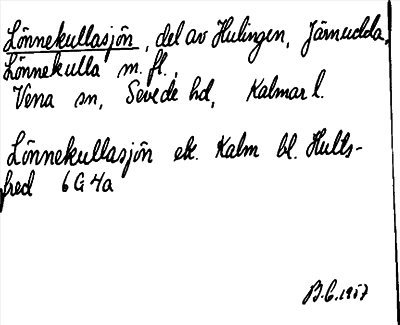 Lönnekullasjön, del av Hulingen, Järnudda,
Lönnekulla m. fl.,
Vena sn, Sevede hd, Kalmar l.
Lönnekullasjön ek. Kalm bl. Hults-
fred 6G4a
B.G. 1957